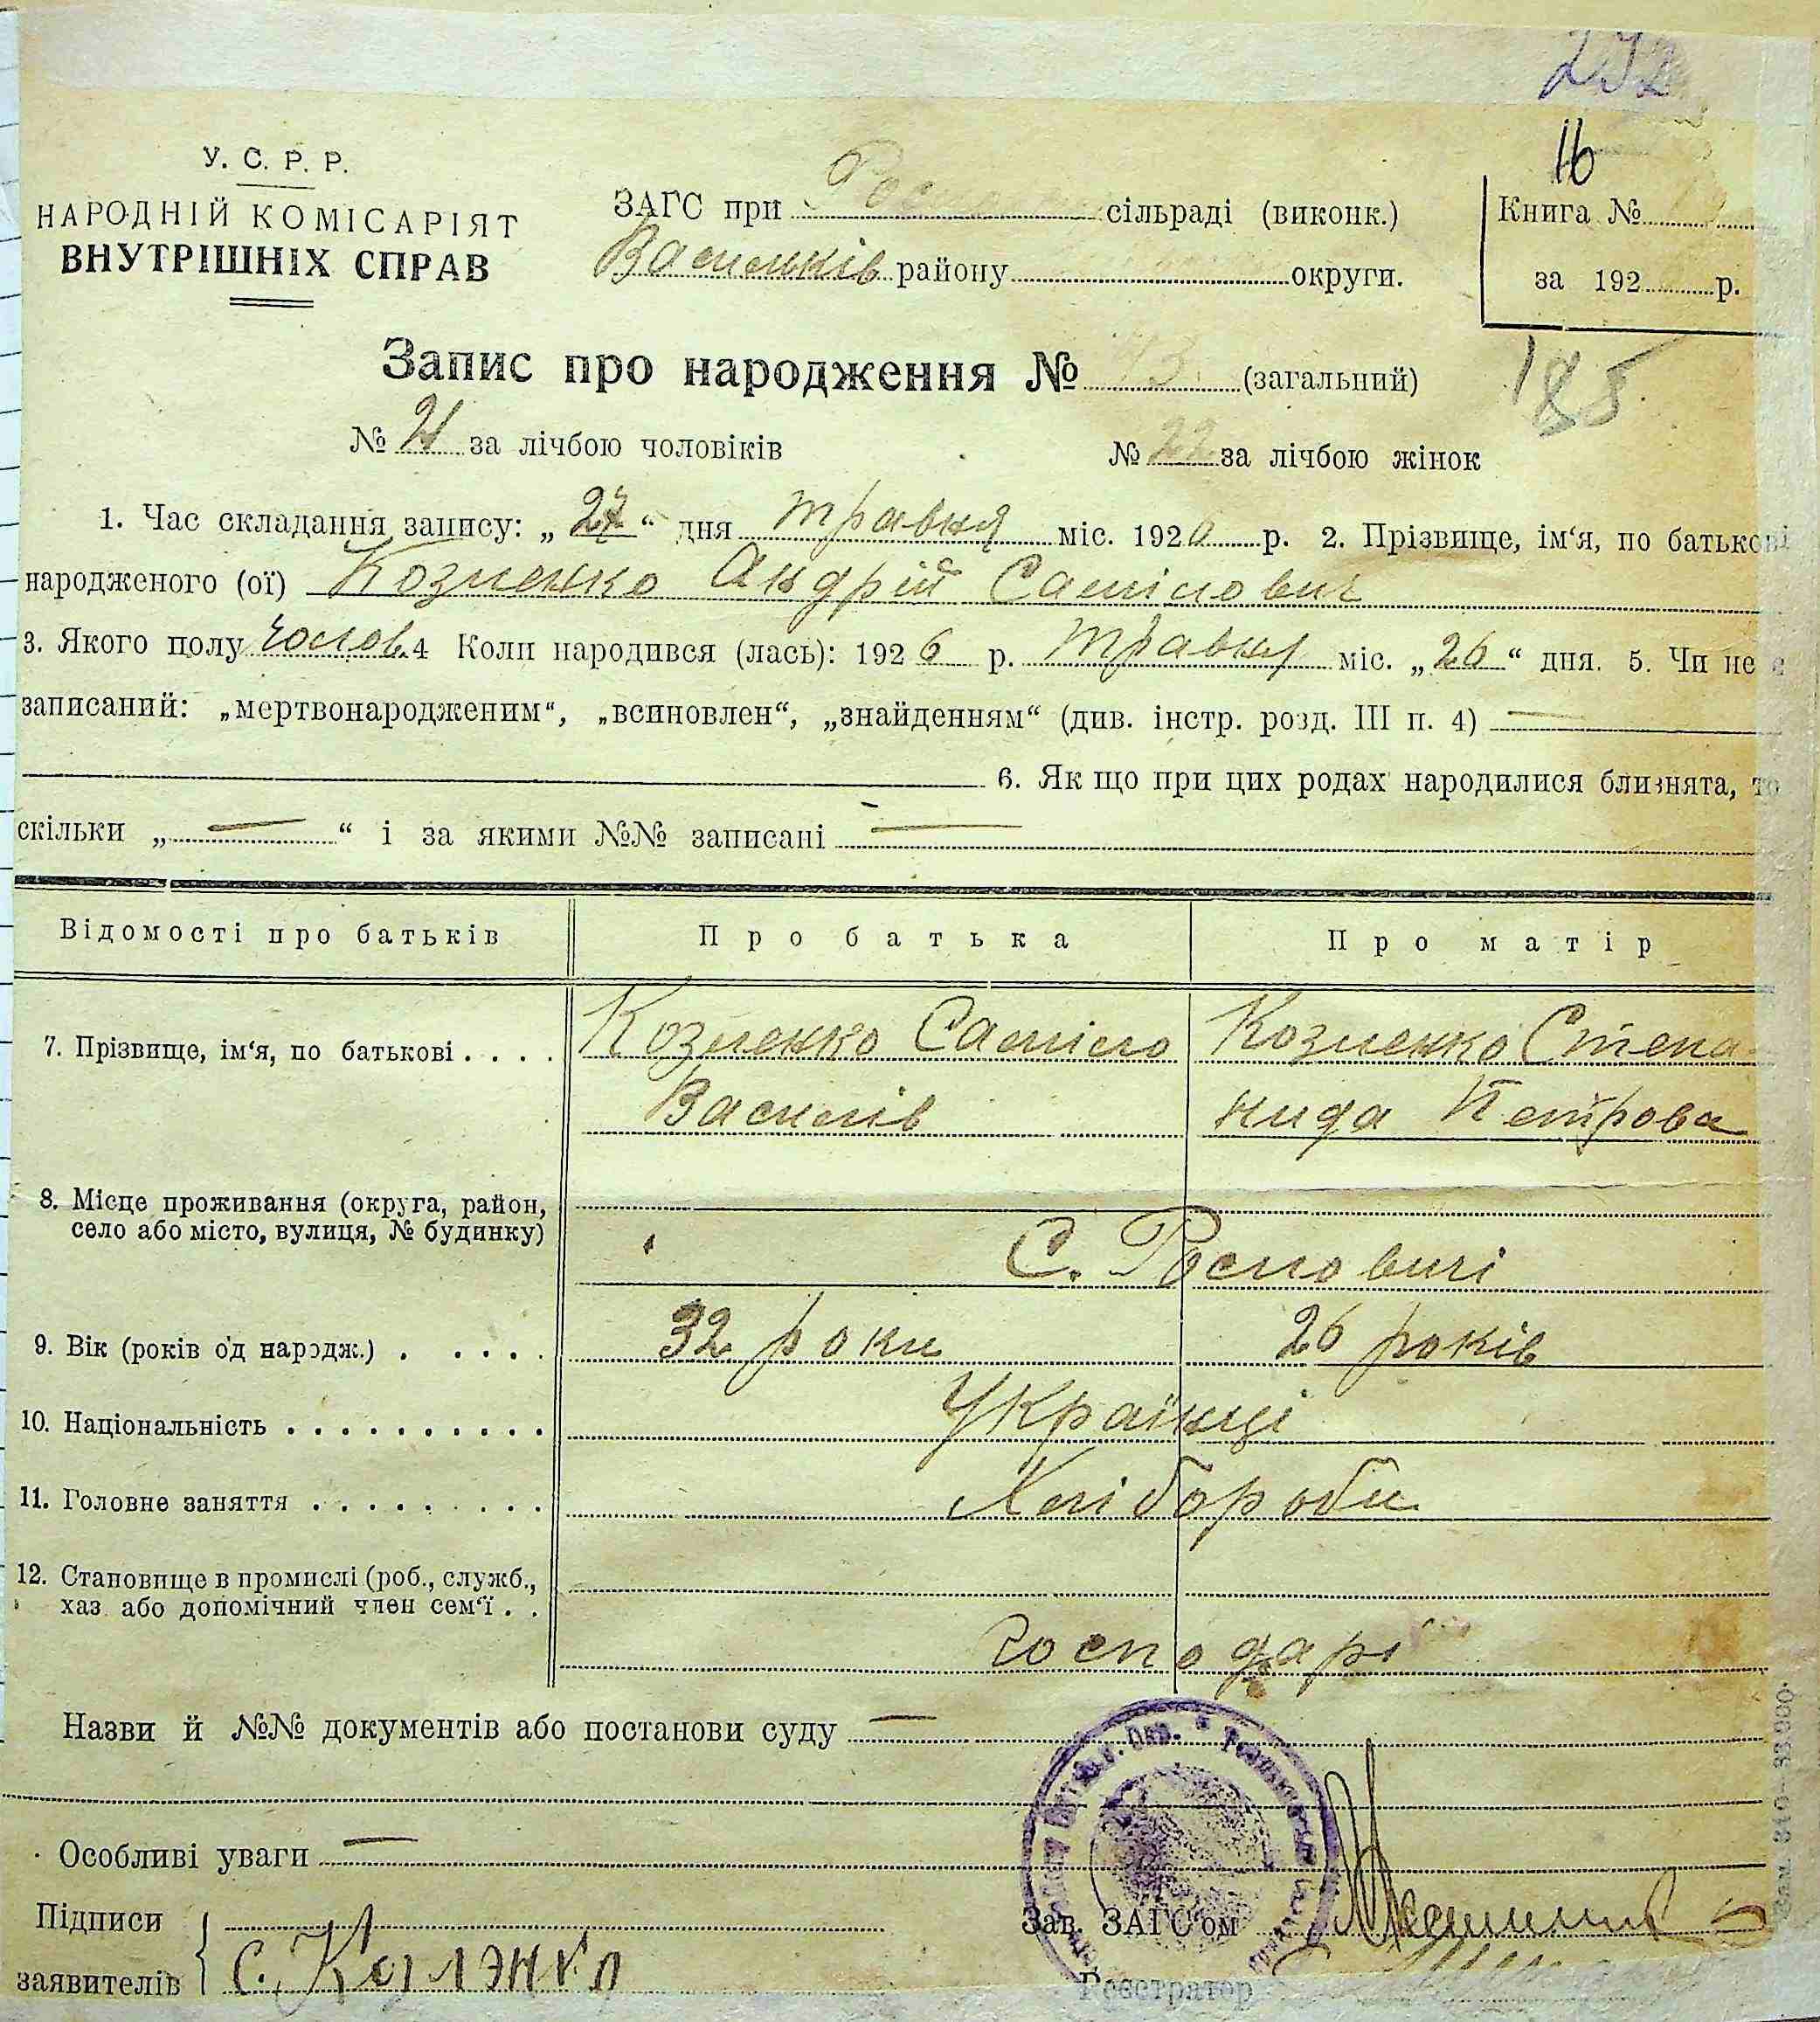 16
У. С. Р. Р.
НАРОДНІЙ КОМІСАРІЯТ
ВНУТРІШНІХ СПРАВ
ЗАГС при сільраді (виконк.)
Васильків району округи.
Книга №
за 192 р.
Запис про народження № 43. (загальний)
185
№ 21 за лічбою чоловіків № 22 за лічбою жінок
1. Час складання запису: „27“ дня травня міс. 192 р. 2. Прізвище, ім‘я, по батькові
народженого (ої) Козленко Андрій Самійлович
3. Якого полу чолов. 4 Коли народився (лась): 1926 р. травня міс. „26“ дня. 5. Чи не є
записаний: „мертвонародженим“, „всиновлен“, „знайденням“ (див. інстр. розд. III п. 4) —
6. Як що при цих родах народилися близнята, то
скільки „—“ і за якими №№ записані —
Відомості про батьків Про батька Про матір
7. Прізвище, ім‘я, по батькові . . . . Козленко Саміло Козленко Степа-
Василів нида Петрова
8. Місце проживання (округа, район,
село або місто, вулиця, № будинку) С. Рословичі
9. Вік (років од народж.) . . . . . 32 роки 26 років
10. Національність . . . . . . . . . . Українці
11. Головне заняття . . . . . . . . . Хлібороби
12. Становище в промислі (роб., служб.,
хаз або допомічний член сем‘ї . . господарі
Назви й №№ документів або постанови суду —
Особливі уваги —
Підписи
заявителів С. Козлэнко
Зав. ЗАГС‘ом
Реєстратор